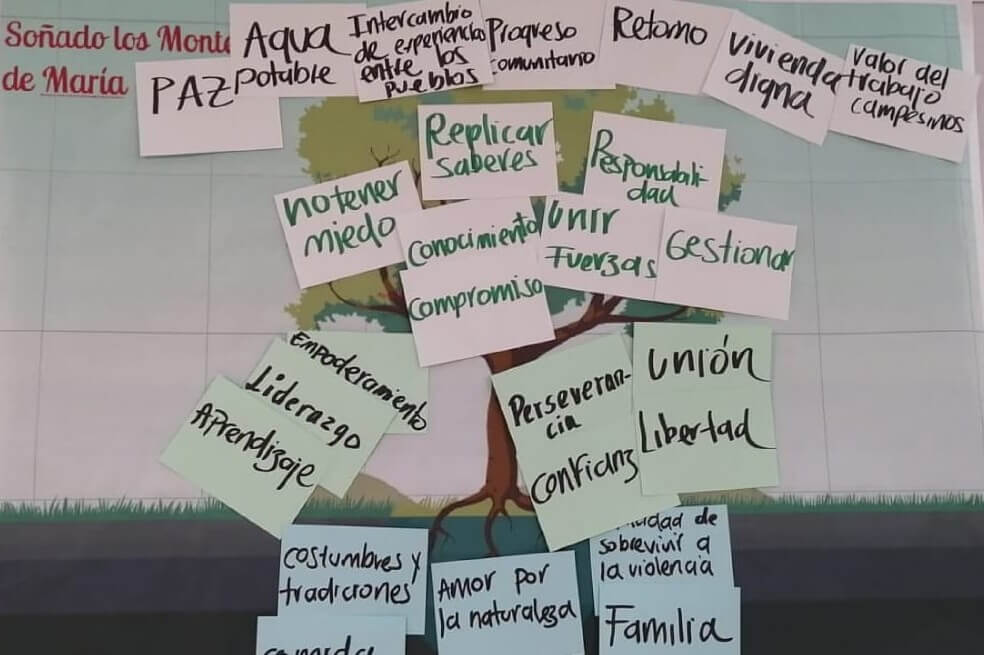 Soñado los Monte
de María
PAZ
Aqua
potable
Intercambio
de experiencias
entre los
pueblos
Progreso
comunitario
Retorno
vivienda
digna
Valor del
trabajo
campesinos
Replicar
saberes
Responsabili-
dad
no tener
miedo
conocimiento
compromiso
unir
Fuerzas
Gestionar
Empoderamiento
Liderazgo
Aprendizaje
Perseveran-
cia
confianz
unión
Libertad
costumbres y
tradiciones
Amor por
la naturaleza
de
sobrevivir a
la violencia
Familia
comida